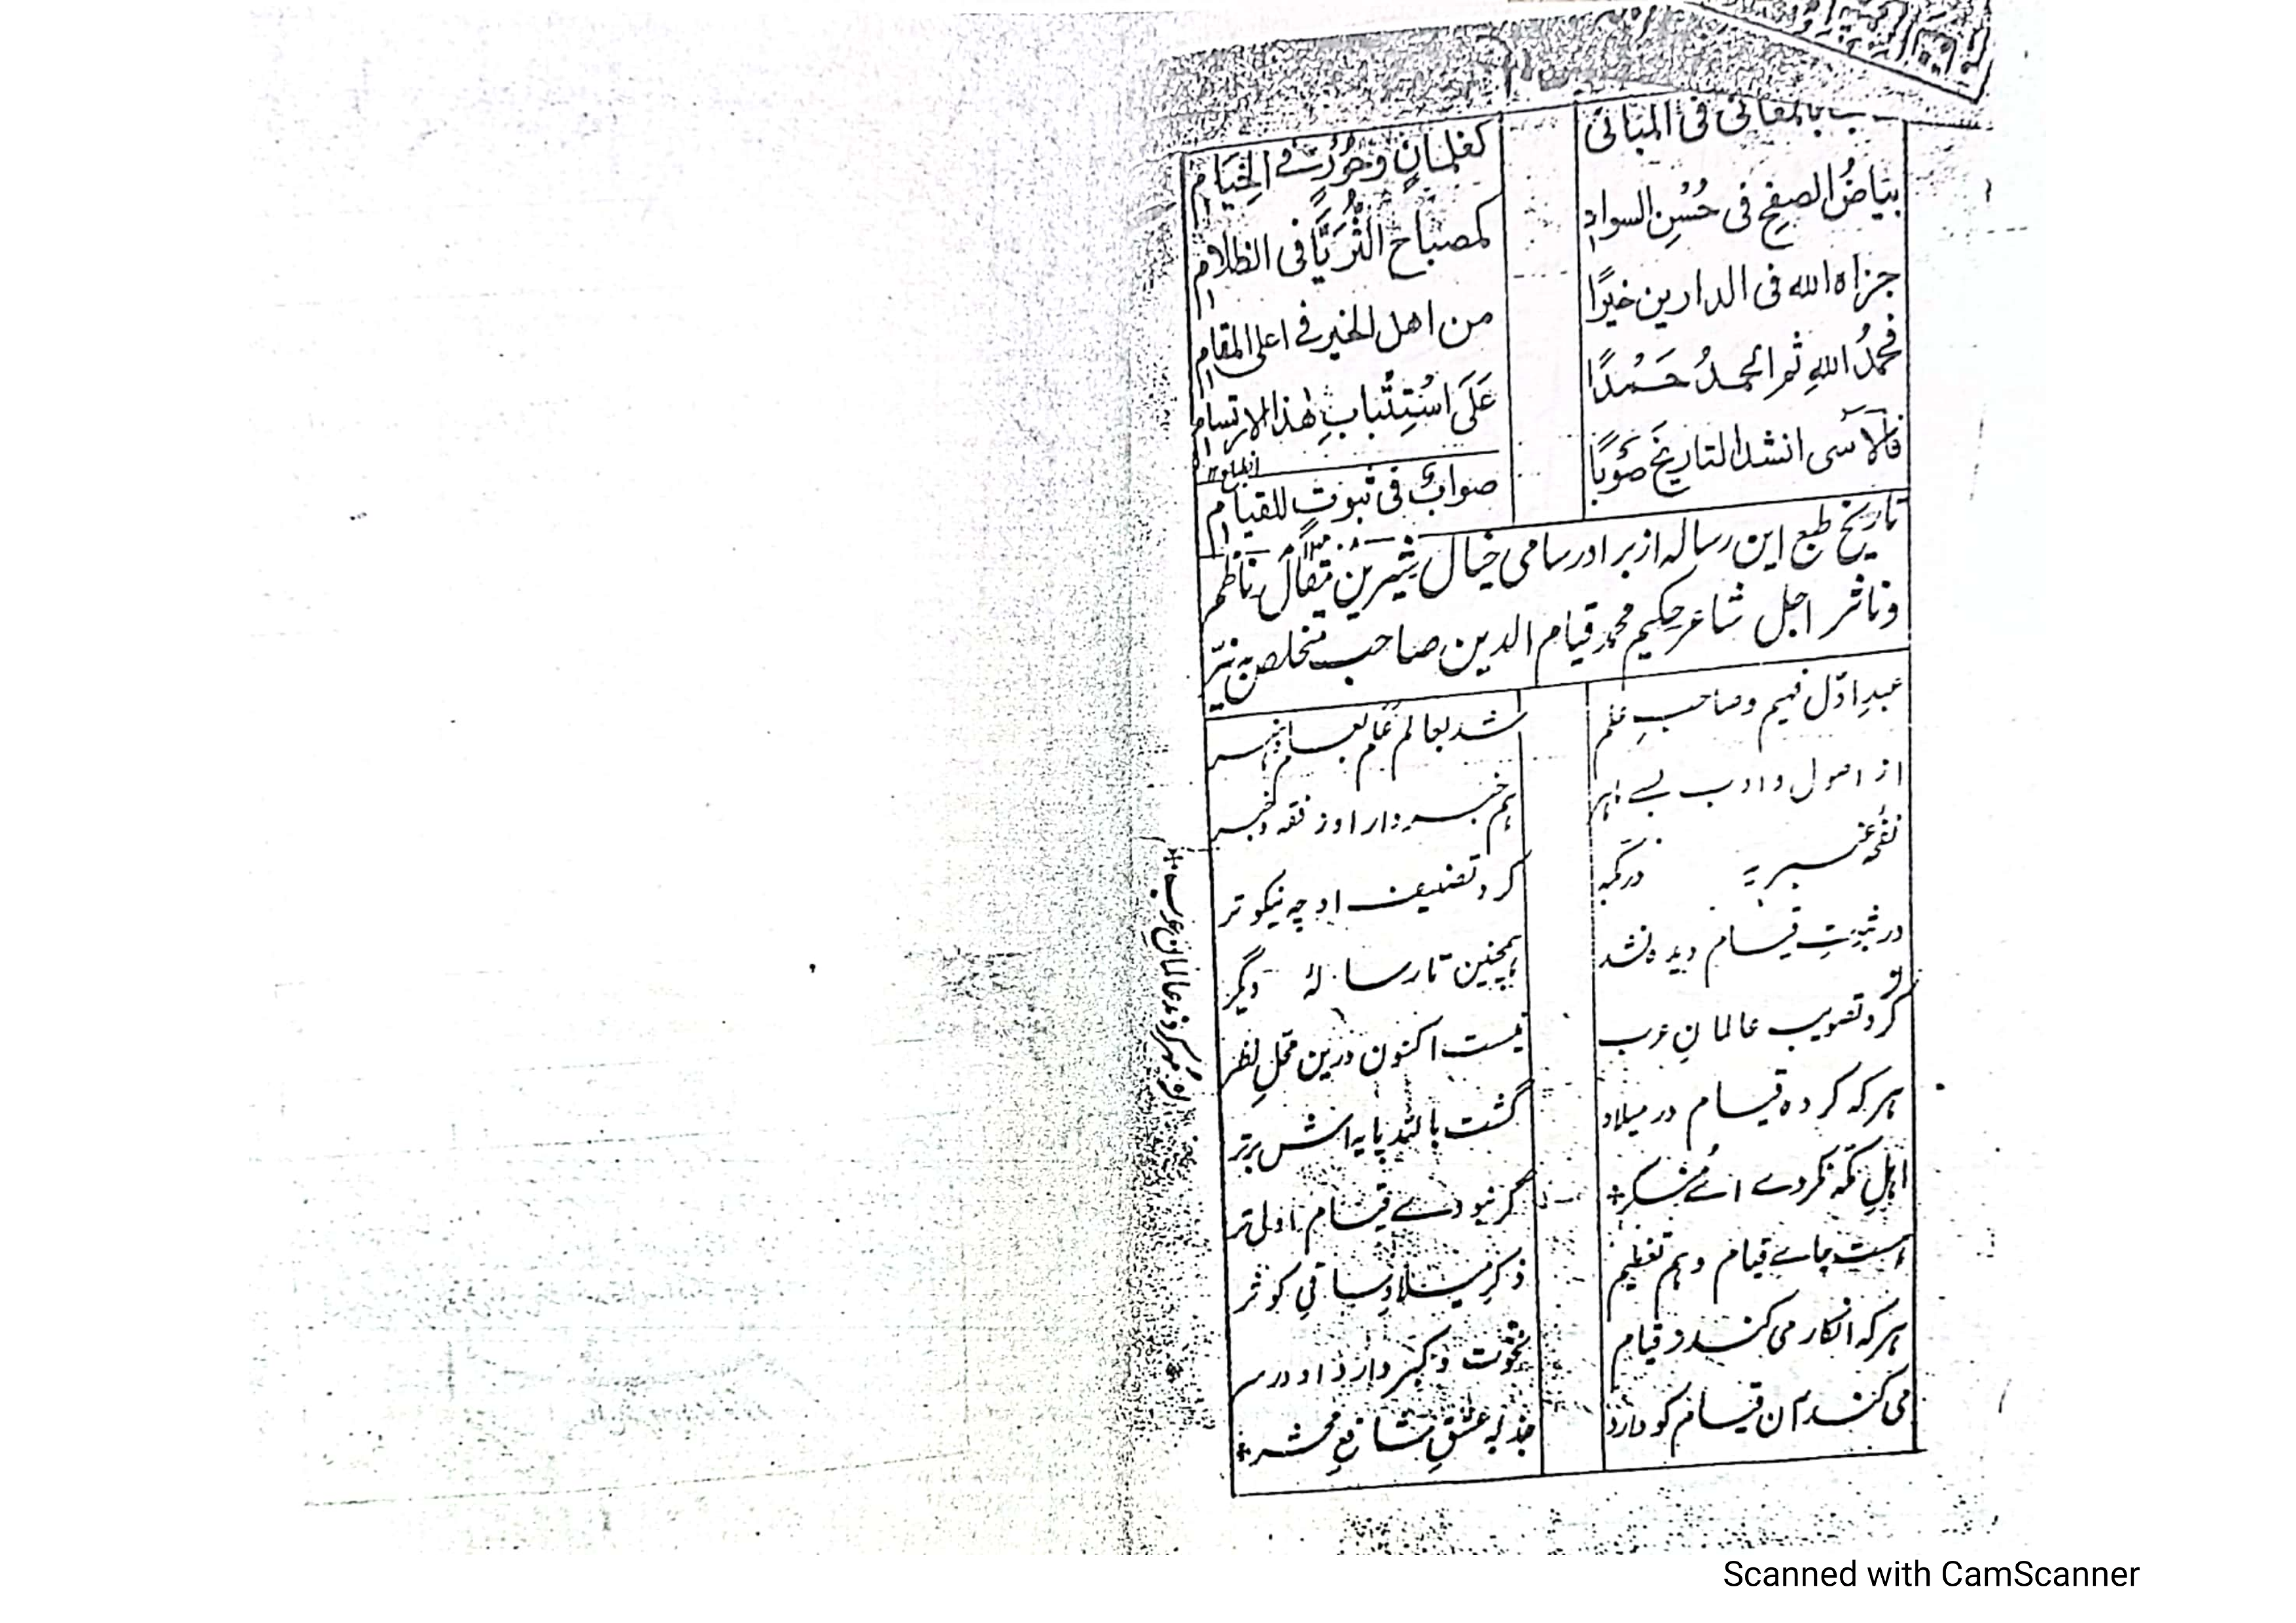 بالمعانى فى المبانى
كغلمانٍ وحورٍ فے الخيام
بياضُ الصفحِ فى حُسنِ السوادِ
كمصباح الثُّرَيَّا فى الظلام
جزاه الله فى الدارين خيرًا
من اهل الخير فے اعلى المقام
فحمدُ اللهِ ثم الحمدُ حَمْدًا
عَلَى اسْتِتْبابِ هذا الارتسام
فالآسى انشد التاريخَ صَوْبًا
صوابٌ فى ثبوتٍ للقيام
تاریخ طبع این رساله از برادر سامی خیال شیرین مقال ناظم
و ناثر اجل شاعر حکیم محمد قیام الدین صاحب متخلص به نیّر
عبدِ اوّل فہیم و صاحبِ علم
شد بعالم
از اصول و ادب بسے ماہر
ہم خبردار او ز فقہ و خبر
نفحۂ عنبریہ در مکہ
کرد تصنیف او چہ نیکوتر
در ثبوتِ قیام دیدہ نشد
ہمچنین تا رسالۂ دیگر
کرد تصویب عالمانِ عرب
نیست اکنون درین محلِ نظر
ہر کہ کردہ قیام در میلاد
گشت پایہ اش برتر
اہلِ مکہ نکردے اے منکر
گر نبودے قیام اولی تر
ہست جاے قیام و ہم تعظیم
ذکرِ میلادِ ساقیِ کوثر
ہر کہ انکار می کند ز قیام
نخوت و کبر دارد او در سر
می کند آن قیام کو دارد
جذبۂ عشقِ شافعِ محشر
عالمانِ عرب
Scanned with CamScanner